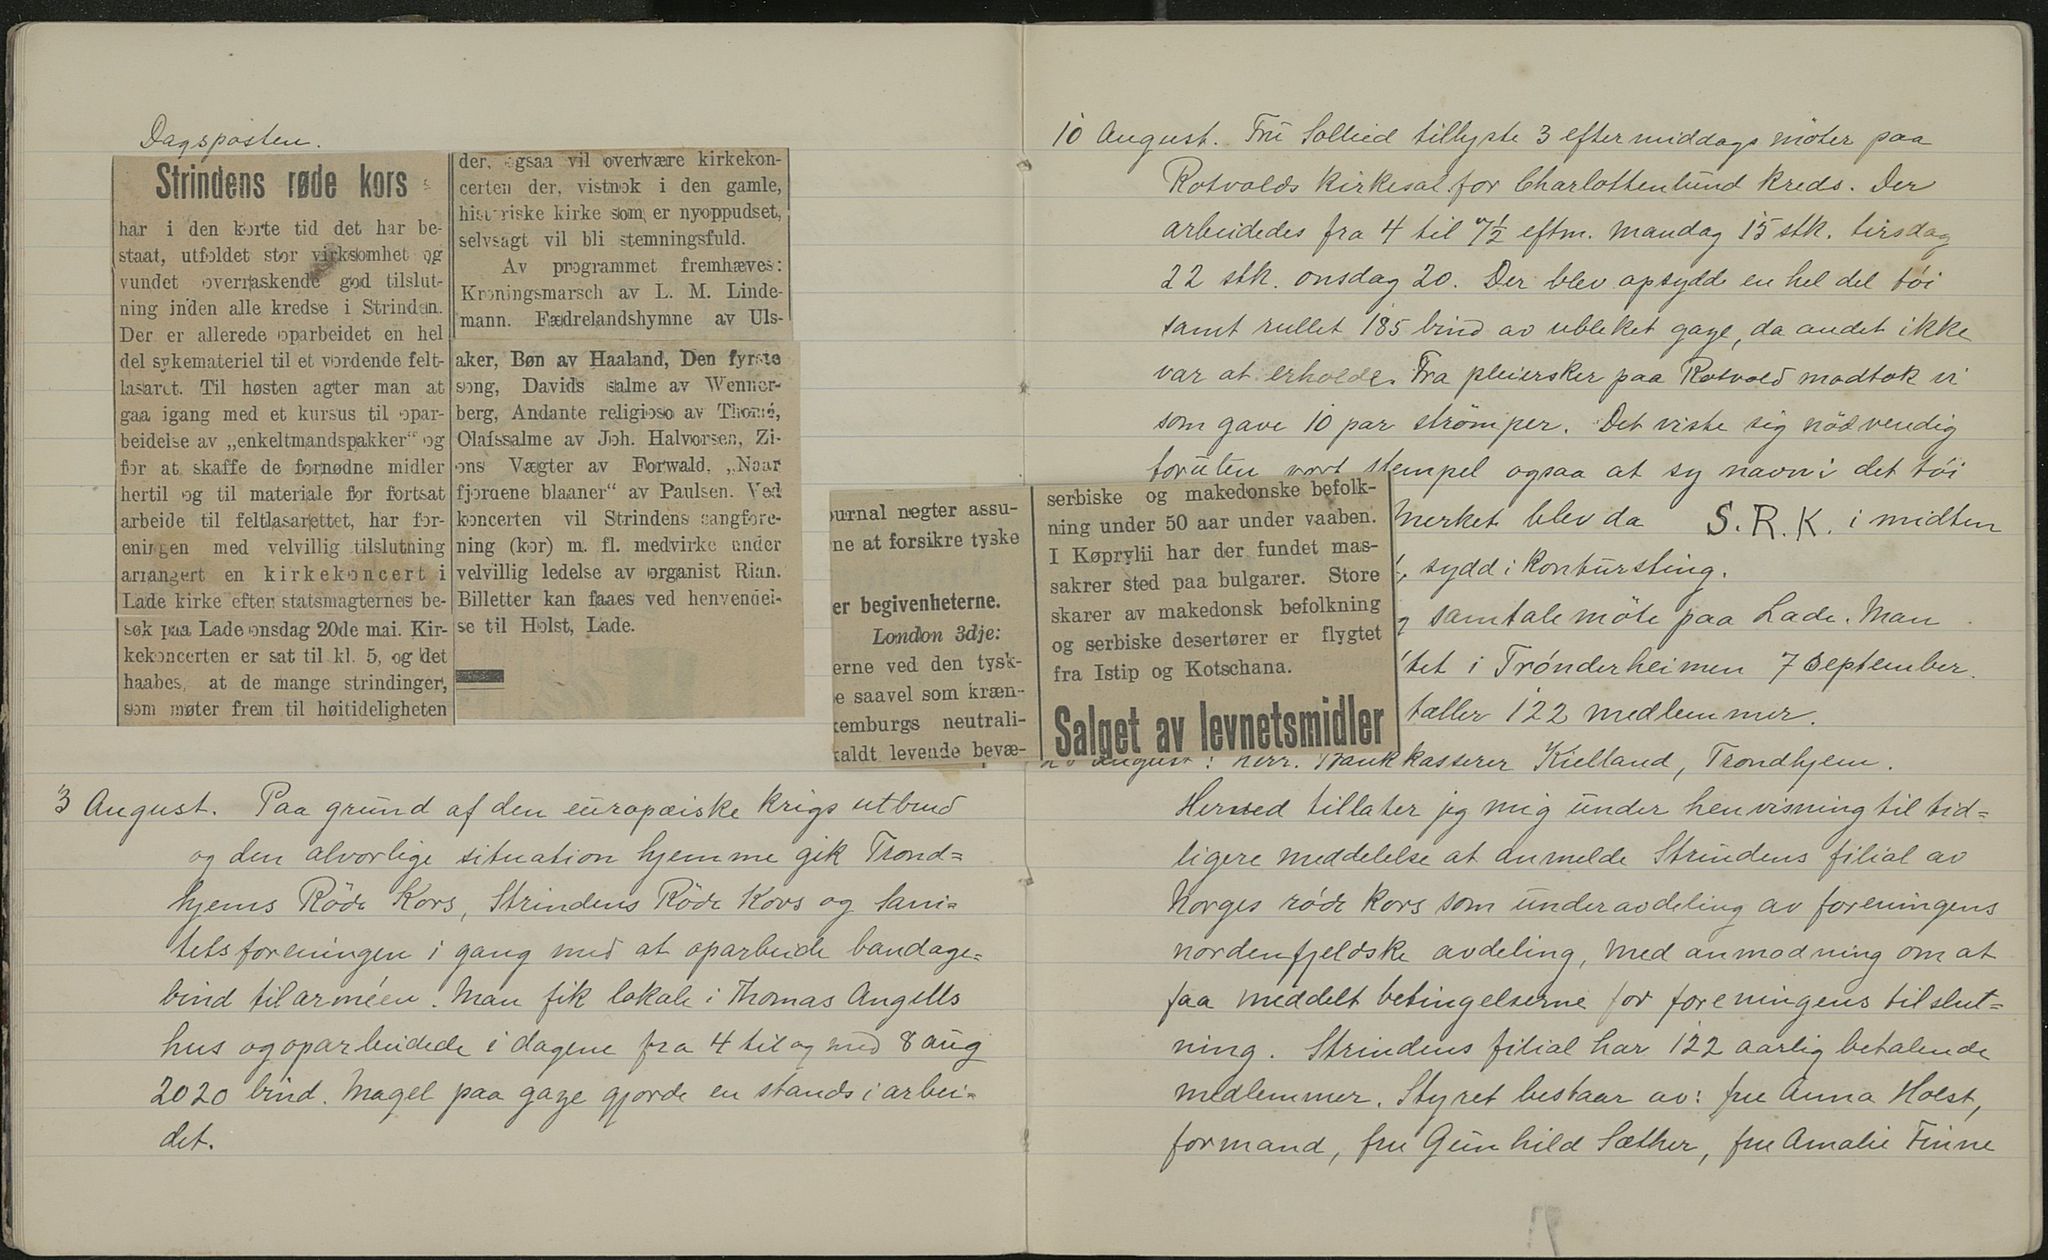 Dagsposten.
Strindens røde kors
har i den korte tid det har be-
staat, utfoldet stor virksomhet og
vundet overraskende god tilslut-
ning inden alle kredse i Strinden.
Der er allerede oparbeidet en hel
del sykemateriel til et vordende felt-
lasaret. Til høsten agter man at
gaa igang med et kursus til opar-
beidelse av „enkeltmandspakker“ og
for at skaffe de fornødne midler
hertil og til materiale for fortsat
arbeide til feltlasarettet, har for-
eningen med velvillig tilslutning
arrangert en kirkekoncert i
Lade kirke efter statsmagternes be-
søk paa Lade onsdag 20de mai. Kir-
kekoncerten er sat til kl. 5, og det
haabes, at de mange strindinger,
som møter frem til høitideligheten
der, ogsaa vil overtvære kirkekon-
certen der, vistnok i den gamle,
historiske kirke som er nyoppudset,
selvsagt vil bli stemningsfuld.
Av programmet fremhæves:
Kroningsmarsch av L. M. Linde-
mann. Fædrelandshymne av Uls-
aker, Bøn av Haaland, Den fyrste
song, Davids salme av Wenner-
berg, Andante religioso av Thomé,
Olafssalme av Joh. Halvorsen, Zi-
ons Vægter av Forwald, „Naar
fjordene blaaner“ av Paulsen. Ved
koncerten vil Strindens sangfore-
ning (kor) m. fl. medvirke under
velvillig ledelse av organist Rian.
Billetter kan faaes ved henvendel-
se til Holst, Lade.
3 August. Paa grund af den europæiske krigs utbrud
og den alvorlige situation hjemme gik Trond=
hjems Röde Kors, Strindens Röde Kors og Sani=
tetsforeningen i gang med at oparbeide bandage=
bind til arméen. Man fik lokale i Thomas Angells
hus og oparbeidede i dagene fra 4 til og med 8 aug
2020 bind. Magel paa gaze gjorde en stands i arbei-
det.
10 August. Fru Sollied tillyste 3 eftermiddags möter paa
Rotvolds kirkesal for Charlottenlund kreds. Der
arbeidedes fra 4 til 7½ eftm. mandag 15 stk. tirsdag
22 stk. onsdag 20. Der blev opsydd en hel del töi
samt rullet 185 bind av ubleket gaze, da andet ikke
var at erholde. Fra pleiersker paa Rotvold modtok vi
som gave 10 par strömper. Det viste sig nödvendig
foruten vort stempel ogsaa at sy navn i det töi
Merket blev da S.R.K. i midten
sydd i kontursting.
samtalemöte paa Lade. Man
tet i Trönderheimen 7 September.
tæller 122 medlemmer.
ournal negter assu-
ne at forsikre tyske
er begivenheterne.
London 3dje:
erne ved den tysk-
e saavel som kræn-
xemburgs neutrali-
kaldt levende bevæ-
serbiske og makedonske befolk-
ning under 50 aar under vaaben.
I Køprylii har der fundet mas-
sakrer sted paa bulgarer. Store
skarer av makedonsk befolkning
og serbiske desertører er flygtet
fra Istip og Kotschana.
Salget av levnetsmidler
August: Herr. Bankkasserer Kielland, Trondhjem.
Herved tillater jeg mig under henvisning til tid=
ligere meddelelse at anmelde Strindens filial av
Norges røde kors som underavdeling av foreningens
nordenfjeldske avdeling, med anmodning om at
faa meddelt betingelserne for foreningens tilslut=
ning. Strindens filial har 122 aarlig betalende
medlemmer. Styret bestaar av: fru Anna Holst,
formand, fru Gunhild Sæther, fru Amalie Finne